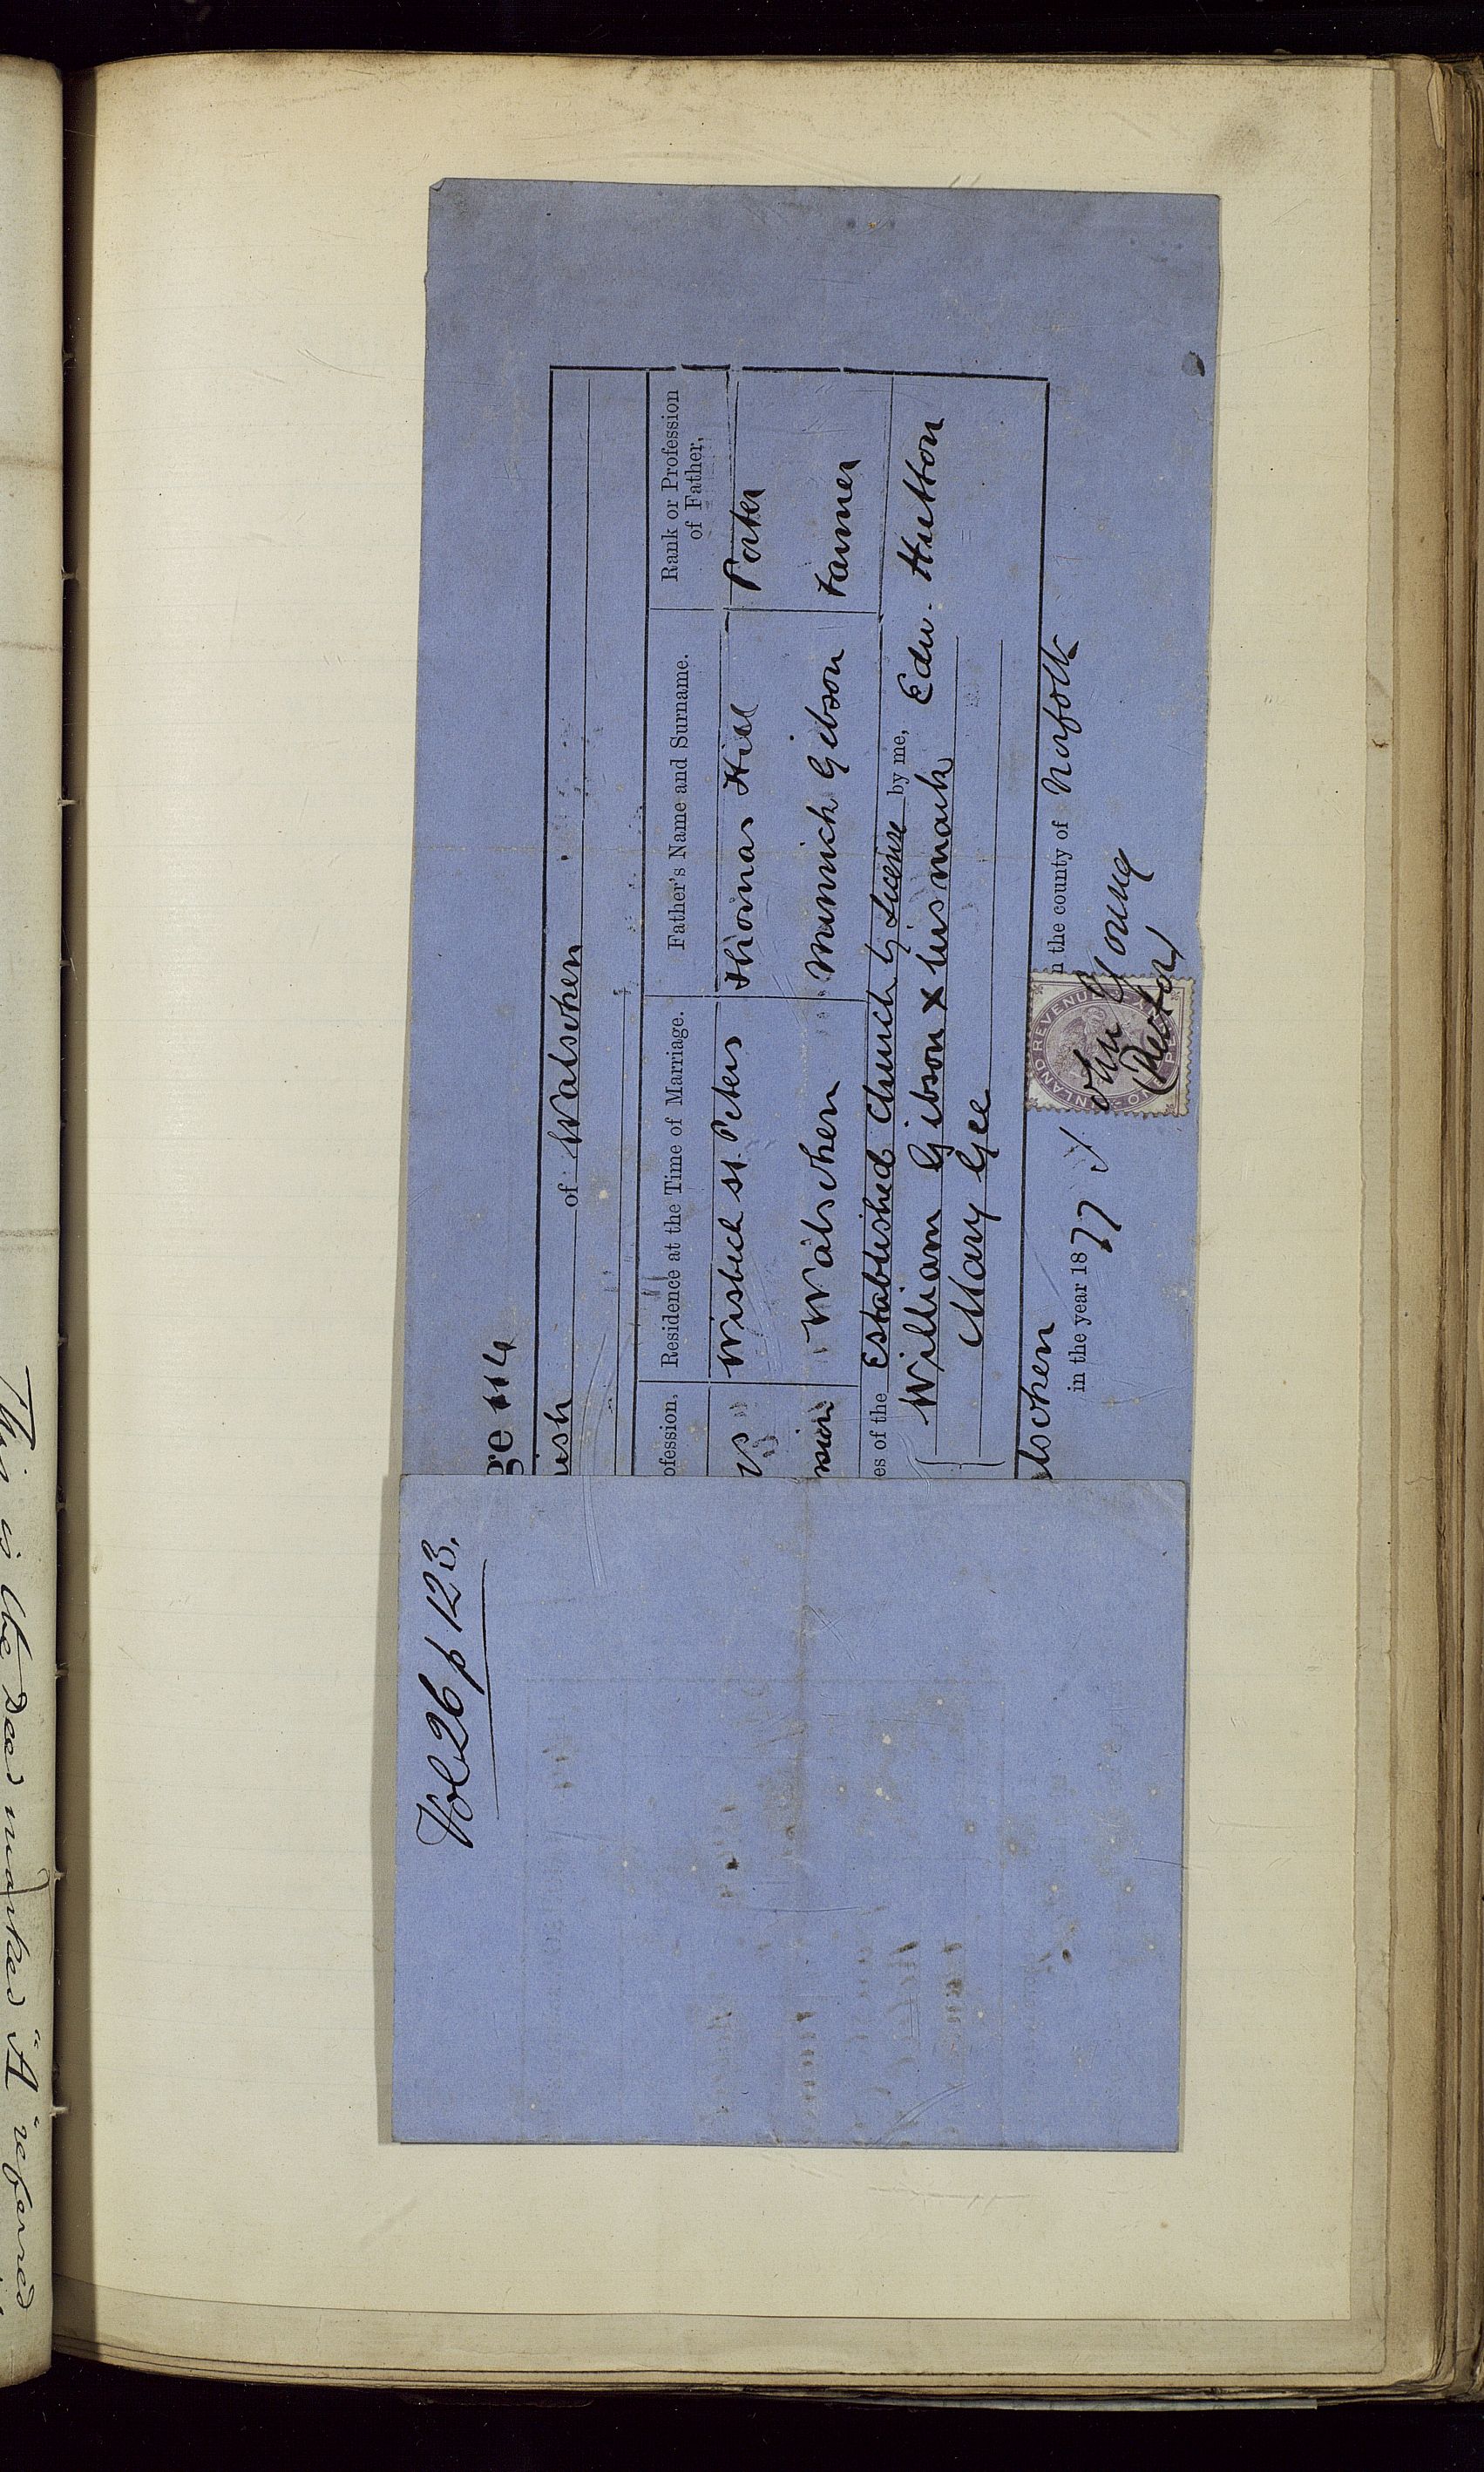 Vol 26 p 123.
ge 114
ish of Walsoken
ofession, Residence at the Time of Marriage. Father's Name and Surname. Rank or Profession of Father,
Wisbech St. Peters Thomas Hill Porter
Walsoken Minnick Gibson Farmer
es of the Established Church by License by me, Edw. Hutton
William Gibson X his mark
Mary Gee
lsoken in the county of Norfolk
in the year 1877
John Young
(Rector)
INLAND REVENUE
This is the Deed marked "A" referred